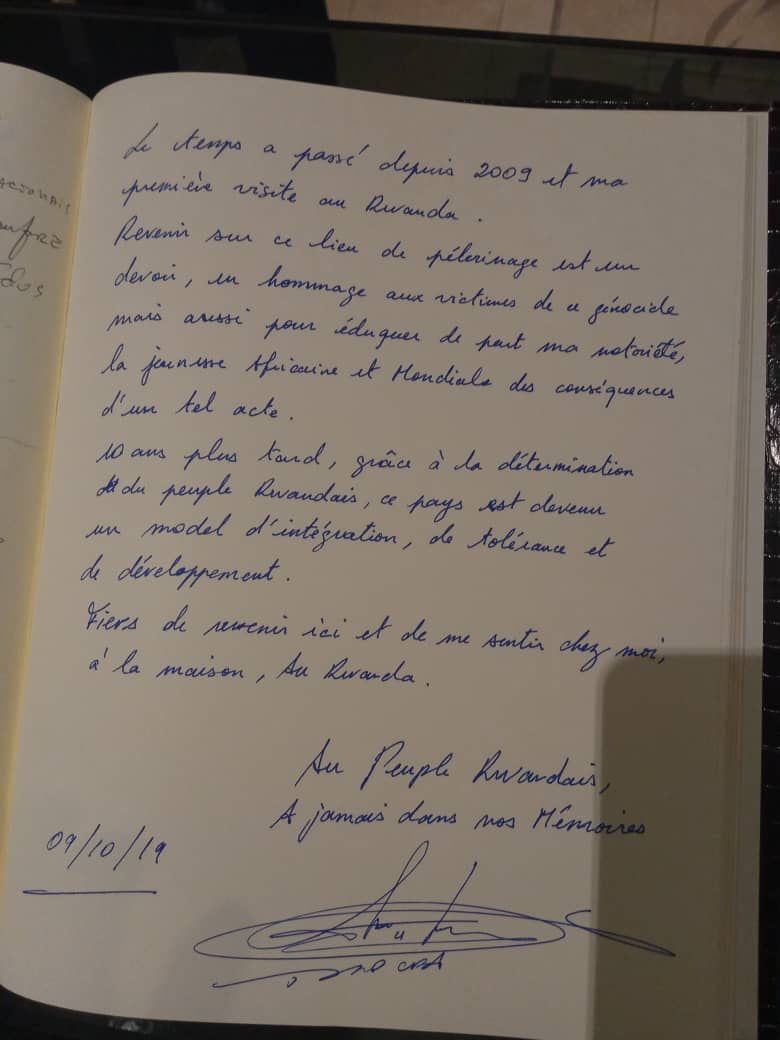 Le temps a passé depuis 2009 et ma
première visite au Rwanda.
Revenir sur ce lieu de pélerinage est un
devoir, en hommage aux victimes de ce génocide
mais aussi pour éduquer de part ma notoriété,
la jeunesse Africaine et Mondiale des conséquences
d'un tel acte.
10 ans plus tard, grâce à la détermination
du peuple Rwandais, ce pays est devenu
un model d'intégration, de tolérance et
de développement.
Fiers de revenir ici et de me sentir chez moi,
à la maison, Au Rwanda.
Au Peuple Rwandais,
A jamais dans nos Mémoires
09/10/19